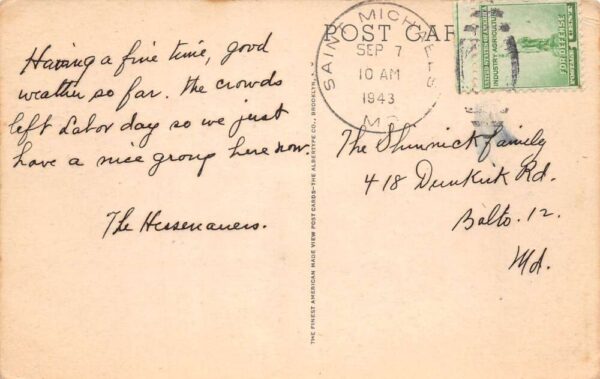 POST CAR
SAINT MICHAELS
SEP 7
10 AM
1943
MD.
UNITED STATES OF AMERICA
INDUSTRY AGRICULTURE
FOR DEFENSE
Having a fine time, good
weather so far. The crowds
left Labor day so we just
have a nice group here now.
The Hessenauers.
THE FINEST AMERICAN MADE VIEW POST CARDS—THE ALBERTYPE CO., BROOKLYN, N. Y.
The Shinnick family
418 Dunkirk Rd.
Balto. 12.
Md.